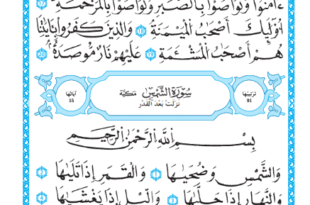 ءَامَنُوا۟ وَتَوَاصَوْا۟ بِٱلصَّبْرِ وَتَوَاصَوْا۟ بِٱلْمَرْحَمَةِ ١٧
أُو۟لَٰٓئِكَ أَصْحَٰبُ ٱلْمَيْمَنَةِ ١٨ وَٱلَّذِينَ كَفَرُوا۟ بِـَٔايَٰتِنَا
هُمْ أَصْحَٰبُ ٱلْمَشْـَٔمَةِ ١٩ عَلَيْهِمْ نَارٌ مُّؤْصَدَةٌۢ ٢٠
ترتيبها ٩١ سُورَةُ ٱلشَّمْسِ مَكِّيَّة آياتها ١٥
نزلت بعد القدر
بِسْمِ ٱللَّهِ ٱلرَّحْمَٰنِ ٱلرَّحِيمِ
وَٱلشَّمْسِ وَضُحَىٰهَا ١ وَٱلْقَمَرِ إِذَا تَلَىٰهَا ٢
وَٱلنَّهَارِ إِذَا جَلَّىٰهَا ٣ وَٱلَّيْلِ إِذَا يَغْشَىٰهَا ٤